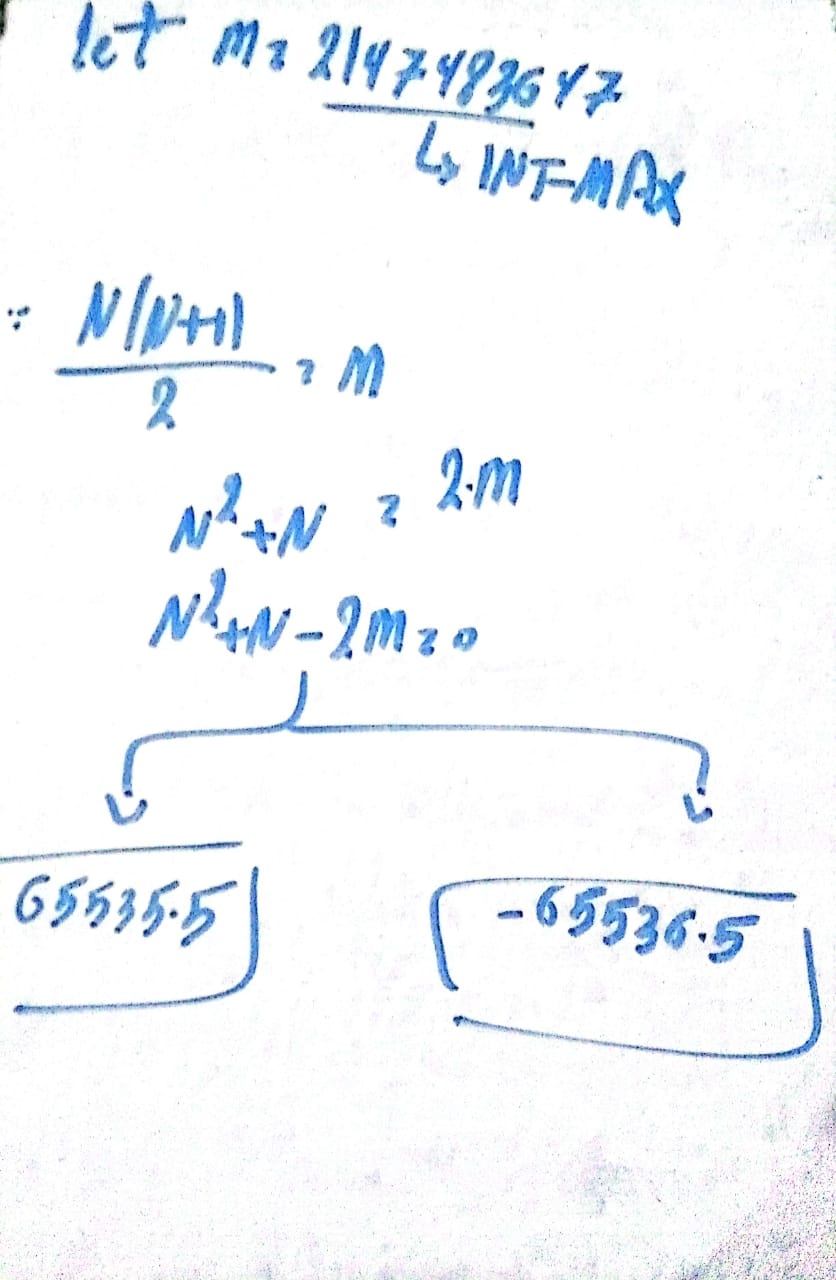 let M = 2147483647
↳ INT-MAX
∵ N(N+1)
2
= M
N²+N = 2·M
N²+N-2M=0
65535.5
-65536.5